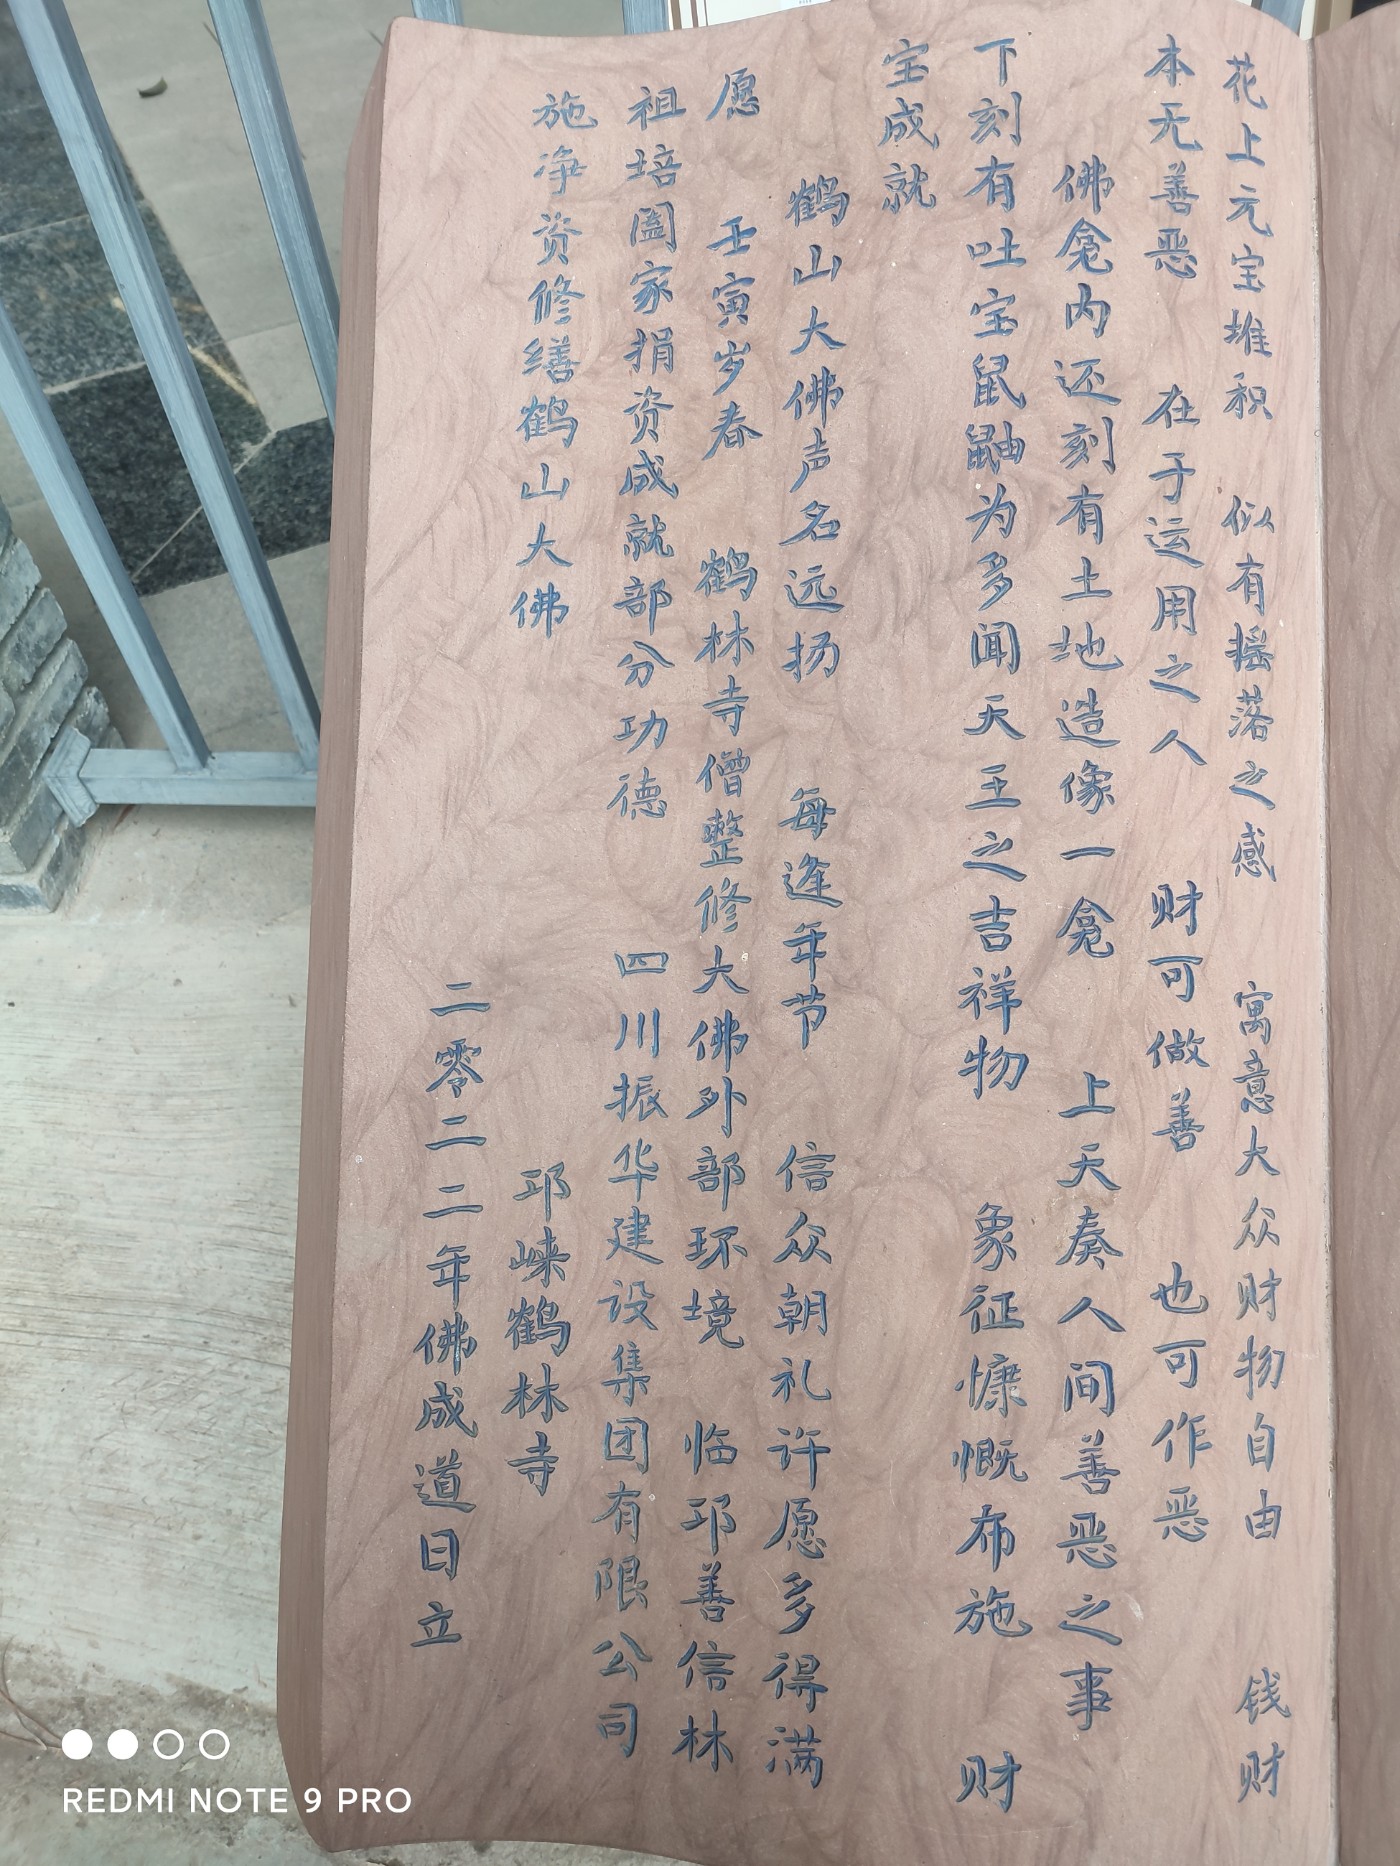 花上元宝堆积 似有摇落之感 寓意大众财物自由 钱财
本无善恶 在于运用之人 财可做善 也可作恶
佛龛内还刻有土地造像一龛 上天奏人间善恶之事
下刻有吐宝鼠鼬为多闻天王之吉祥物 象征慷慨布施 财
宝成就
鹤山大佛声名远扬 每逢年节 信众朝礼许愿多得满
愿 壬寅岁春 鹤林寺僧整修大佛外部环境 临邛善信林
祖培阖家捐资成就部分功德 四川振华建设集团有限公司
施净资修缮鹤山大佛
邛崃鹤林寺
二零二二年佛成道日立
REDMI NOTE 9 PRO